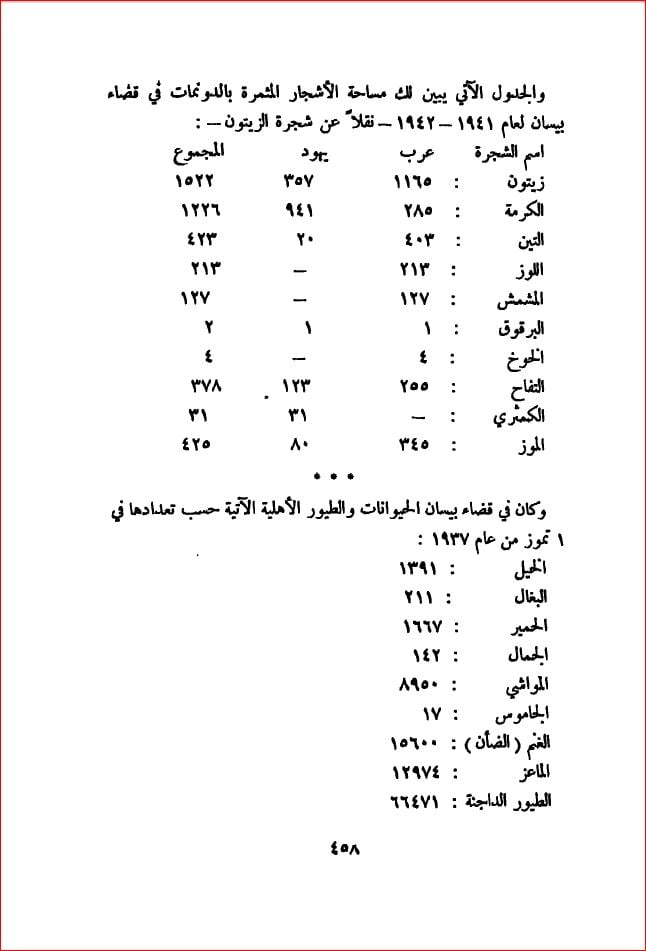 والجدول الآتي يبين لك مساحة الأشجار المثمرة بالدونمات في قضاء
بيسان لعام ١٩٤١ – ١٩٤٢ – نقلاً عن شجرة الزيتون – :
اسم الشجرة عرب يهود المجموع
زيتون : ١١٦٥ ٣٥٧ ١٥٢٢
الكرمة : ٢٨٥ ٩٤١ ١٢٢٦
التين : ٤٠٣ ٢٠ ٤٢٣
اللوز : ٢١٣ – ٢١٣
المشمش : ١٢٧ – ١٢٧
البرقوق : ١ ١ ٢
الخوخ : ٤ – ٤
التفاح : ٢٥٥ ١٢٣ ٣٧٨
الكمثري : – ٣١ ٣١
الموز : ٣٤٥ ٨٠ ٤٢٥
* * *
وكان في قضاء بيسان الحيوانات والطيور الأهلية الآتية حسب تعدادها في
١ تموز من عام ١٩٣٧ :
الخيل : ١٣٩١
البغال : ٢١١
الحمير : ١٦٦٧
الجمال : ١٤٢
المواشي : ٨٩٥٠
الجاموس : ١٧
الغنم ( الضأن ) : ١٥٦٠٠
الماعز : ١٢٩٧٤
الطيور الداجنة : ٦٦٤٧١
٤٥٨